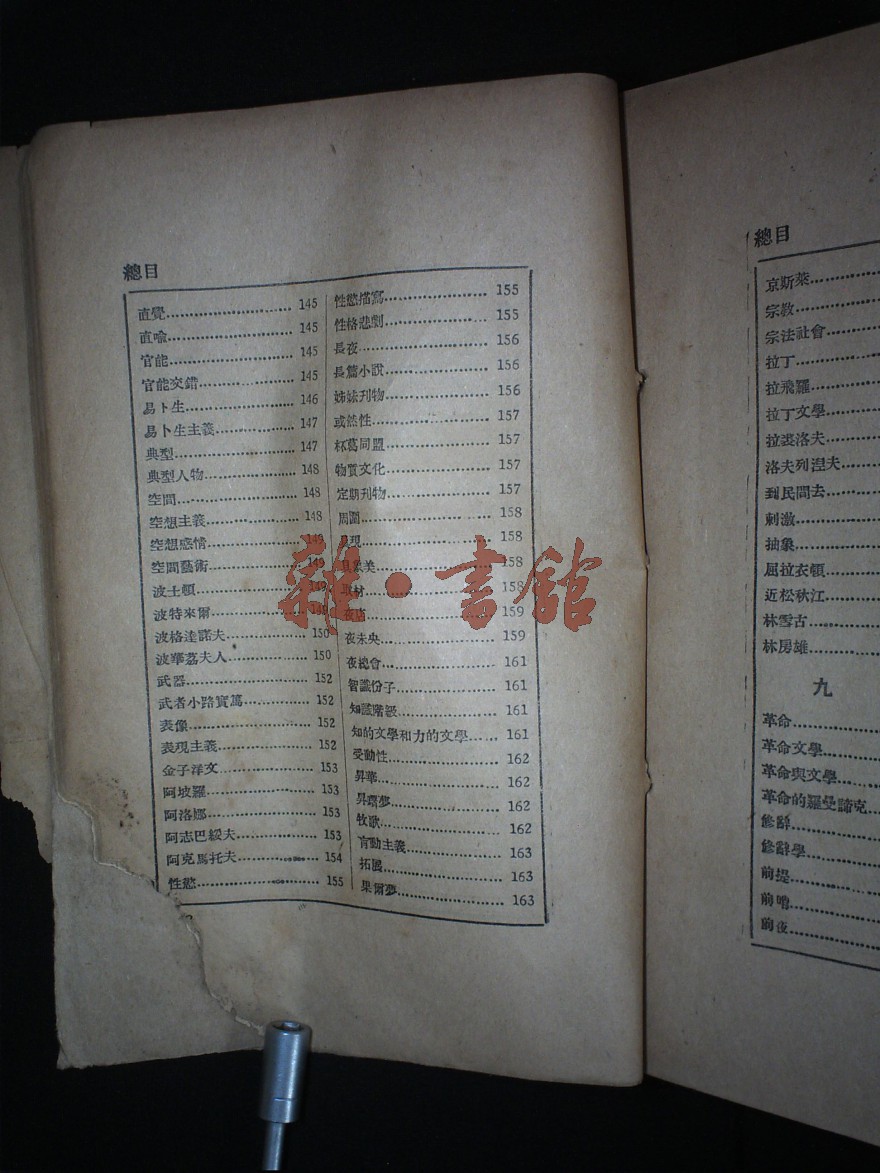 總目
直覺 145
直喩 145
官能 145
官能交錯 145
易卜生 146
易卜生主義 147
典型 147
典型人物 148
空間 148
空想主義 148
空想感情 149
空間藝術 149
波士頓 149
波特來爾 149
波格達諾夫 150
波華荔夫人 150
武器 152
武者小路實篤 152
表像 152
表現主義 152
金子洋文 153
阿坡羅 153
阿洛娜 153
阿志巴綏夫 153
阿克馬托夫 154
性慾 155
性慾描寫 155
性格悲劇 155
長夜 156
長篇小說 156
姊妹刊物 156
或然性 157
杯葛同盟 157
物質文化 157
定期刊物 157
周圍 158
現 158
象美 158
取材 158
夜店 159
夜未央 159
夜總會 161
智識份子 161
知識階級 161
知的文學和力的文學 161
受動性 162
昇華 162
昇齋夢 162
牧歌 162
盲動主義 163
拓展 163
果爾夢 163
總目
京斯萊
宗敎
宗法社會
拉丁
拉飛羅
拉丁文學
拉裘洛夫
洛夫列涅夫
到民間去
刺激
抽象
屈拉衣頓
近松秋江
林雪古
林房雄
九
革命
革命文學
革命與文學
革命的羅曼諦克
修辭
修辭學
前提
前哨
前夜
雜·書館